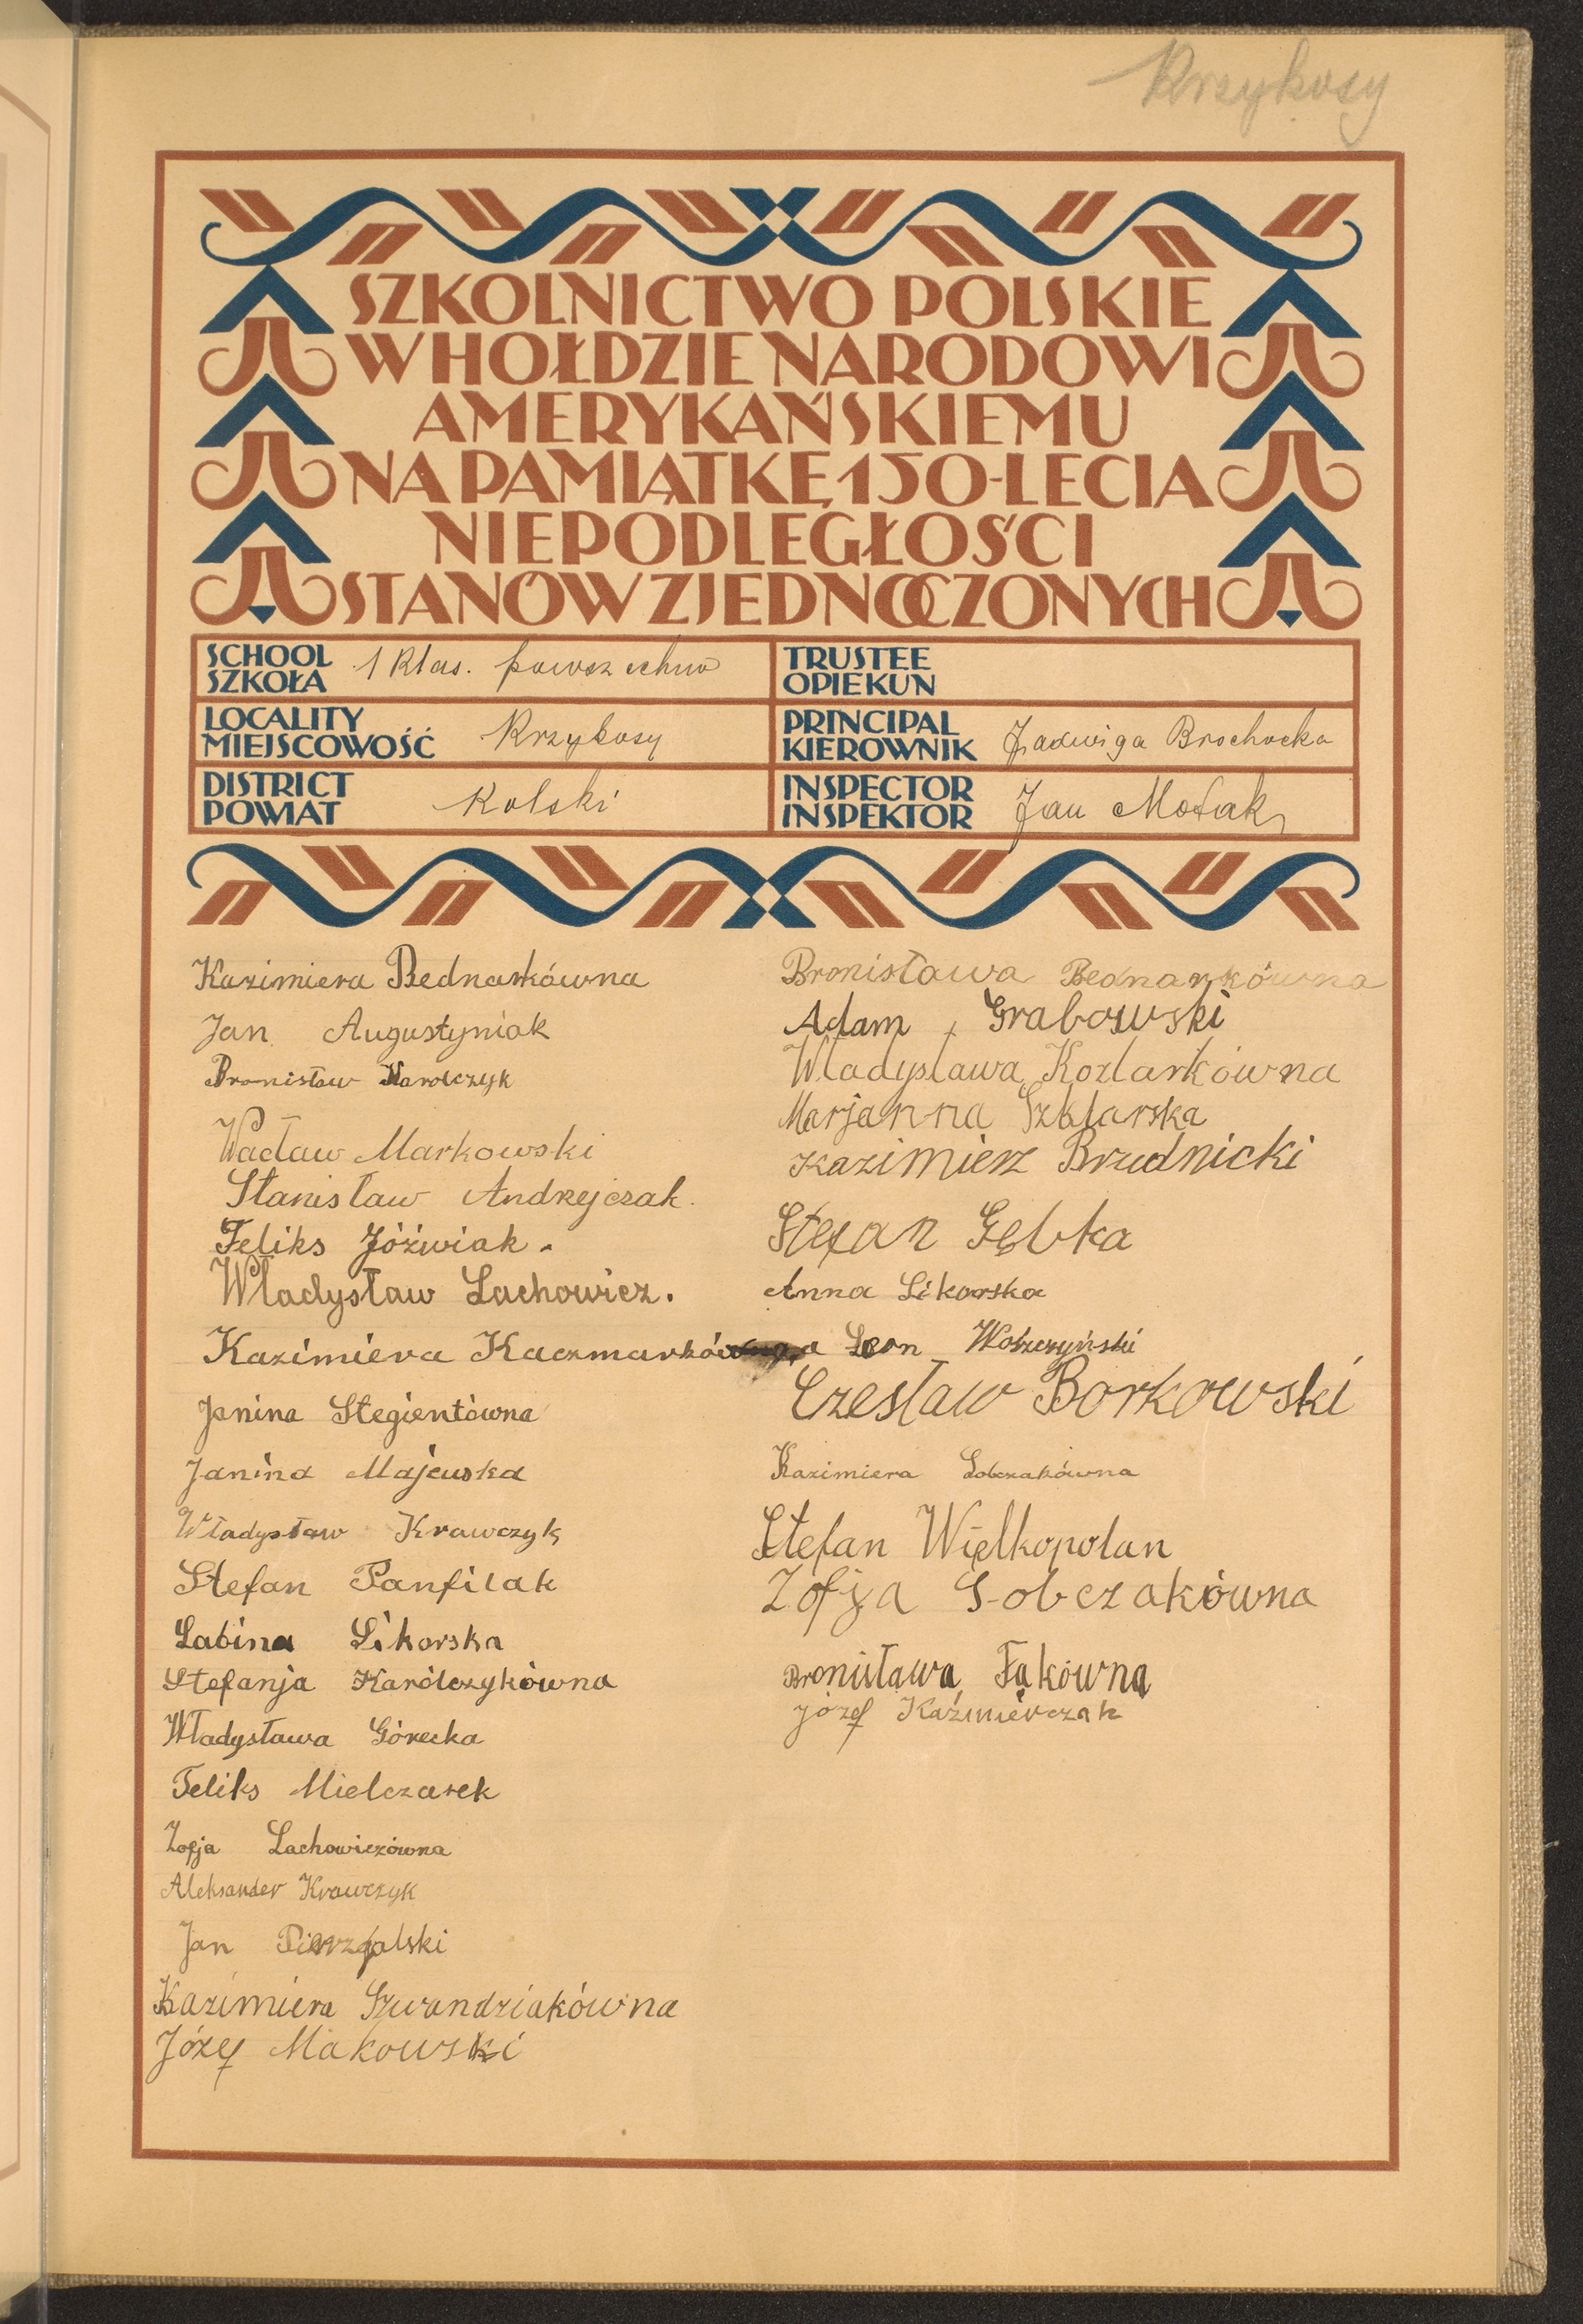 Krzykosy
SZKOLNICTWO POLSKIE
W HOŁDZIE NARODOWI
AMERYKAŃSKIEMU
NA PAMIĄTKĘ 150-LECIA
NIEPODLEGŁOŚCI
STANÓW ZJEDNOCZONYCH
SCHOOL
SZKOŁA
1 klas. powszechna
TRUSTEE
OPIEKUN
LOCALITY
MIEJSCOWOŚĆ
Krzykosy
PRINCIPAL
KIEROWNIK
Jadwiga Brochocka
DISTRICT
POWIAT
Kolski
INSPECTOR
INSPEKTOR
Jan
Kazimiera Bednarkówna
Jan Augustyniak
Bronisław Karolczyk
Wacław Markowski
Stanisław Andrejczak
Feliks Jóźwiak.
Władysław Lachowicz.
Kazimiera Kaczmarkówna
Janina Stegientówna
Janina Majewska
Władysław Krawczyk
Stefan Panfilak
Sabina Sikorska
Stefanja Karólczykówna
Władysława Górecka
Feliks Mielczarek
Zofja Lachowiczówna
Aleksander Krawczyk
Jan Pierzgalski
Kazimiera Szwandziakówna
Józef Makowski
Bronisława Bednarkówna
Adam Grabowski
Władysława Kozlarkówna
Marjanna Szklarska
Kazimierz Brudnicki
Stefan Gębka
Anna Sikorska
Leon
Czesław Borkowski
Kazimiera Sobczakówna
Stefan Wielkopolan
Zofja Sobczakówna
Bronisława Fąkówna
Józef Kaźmierczak